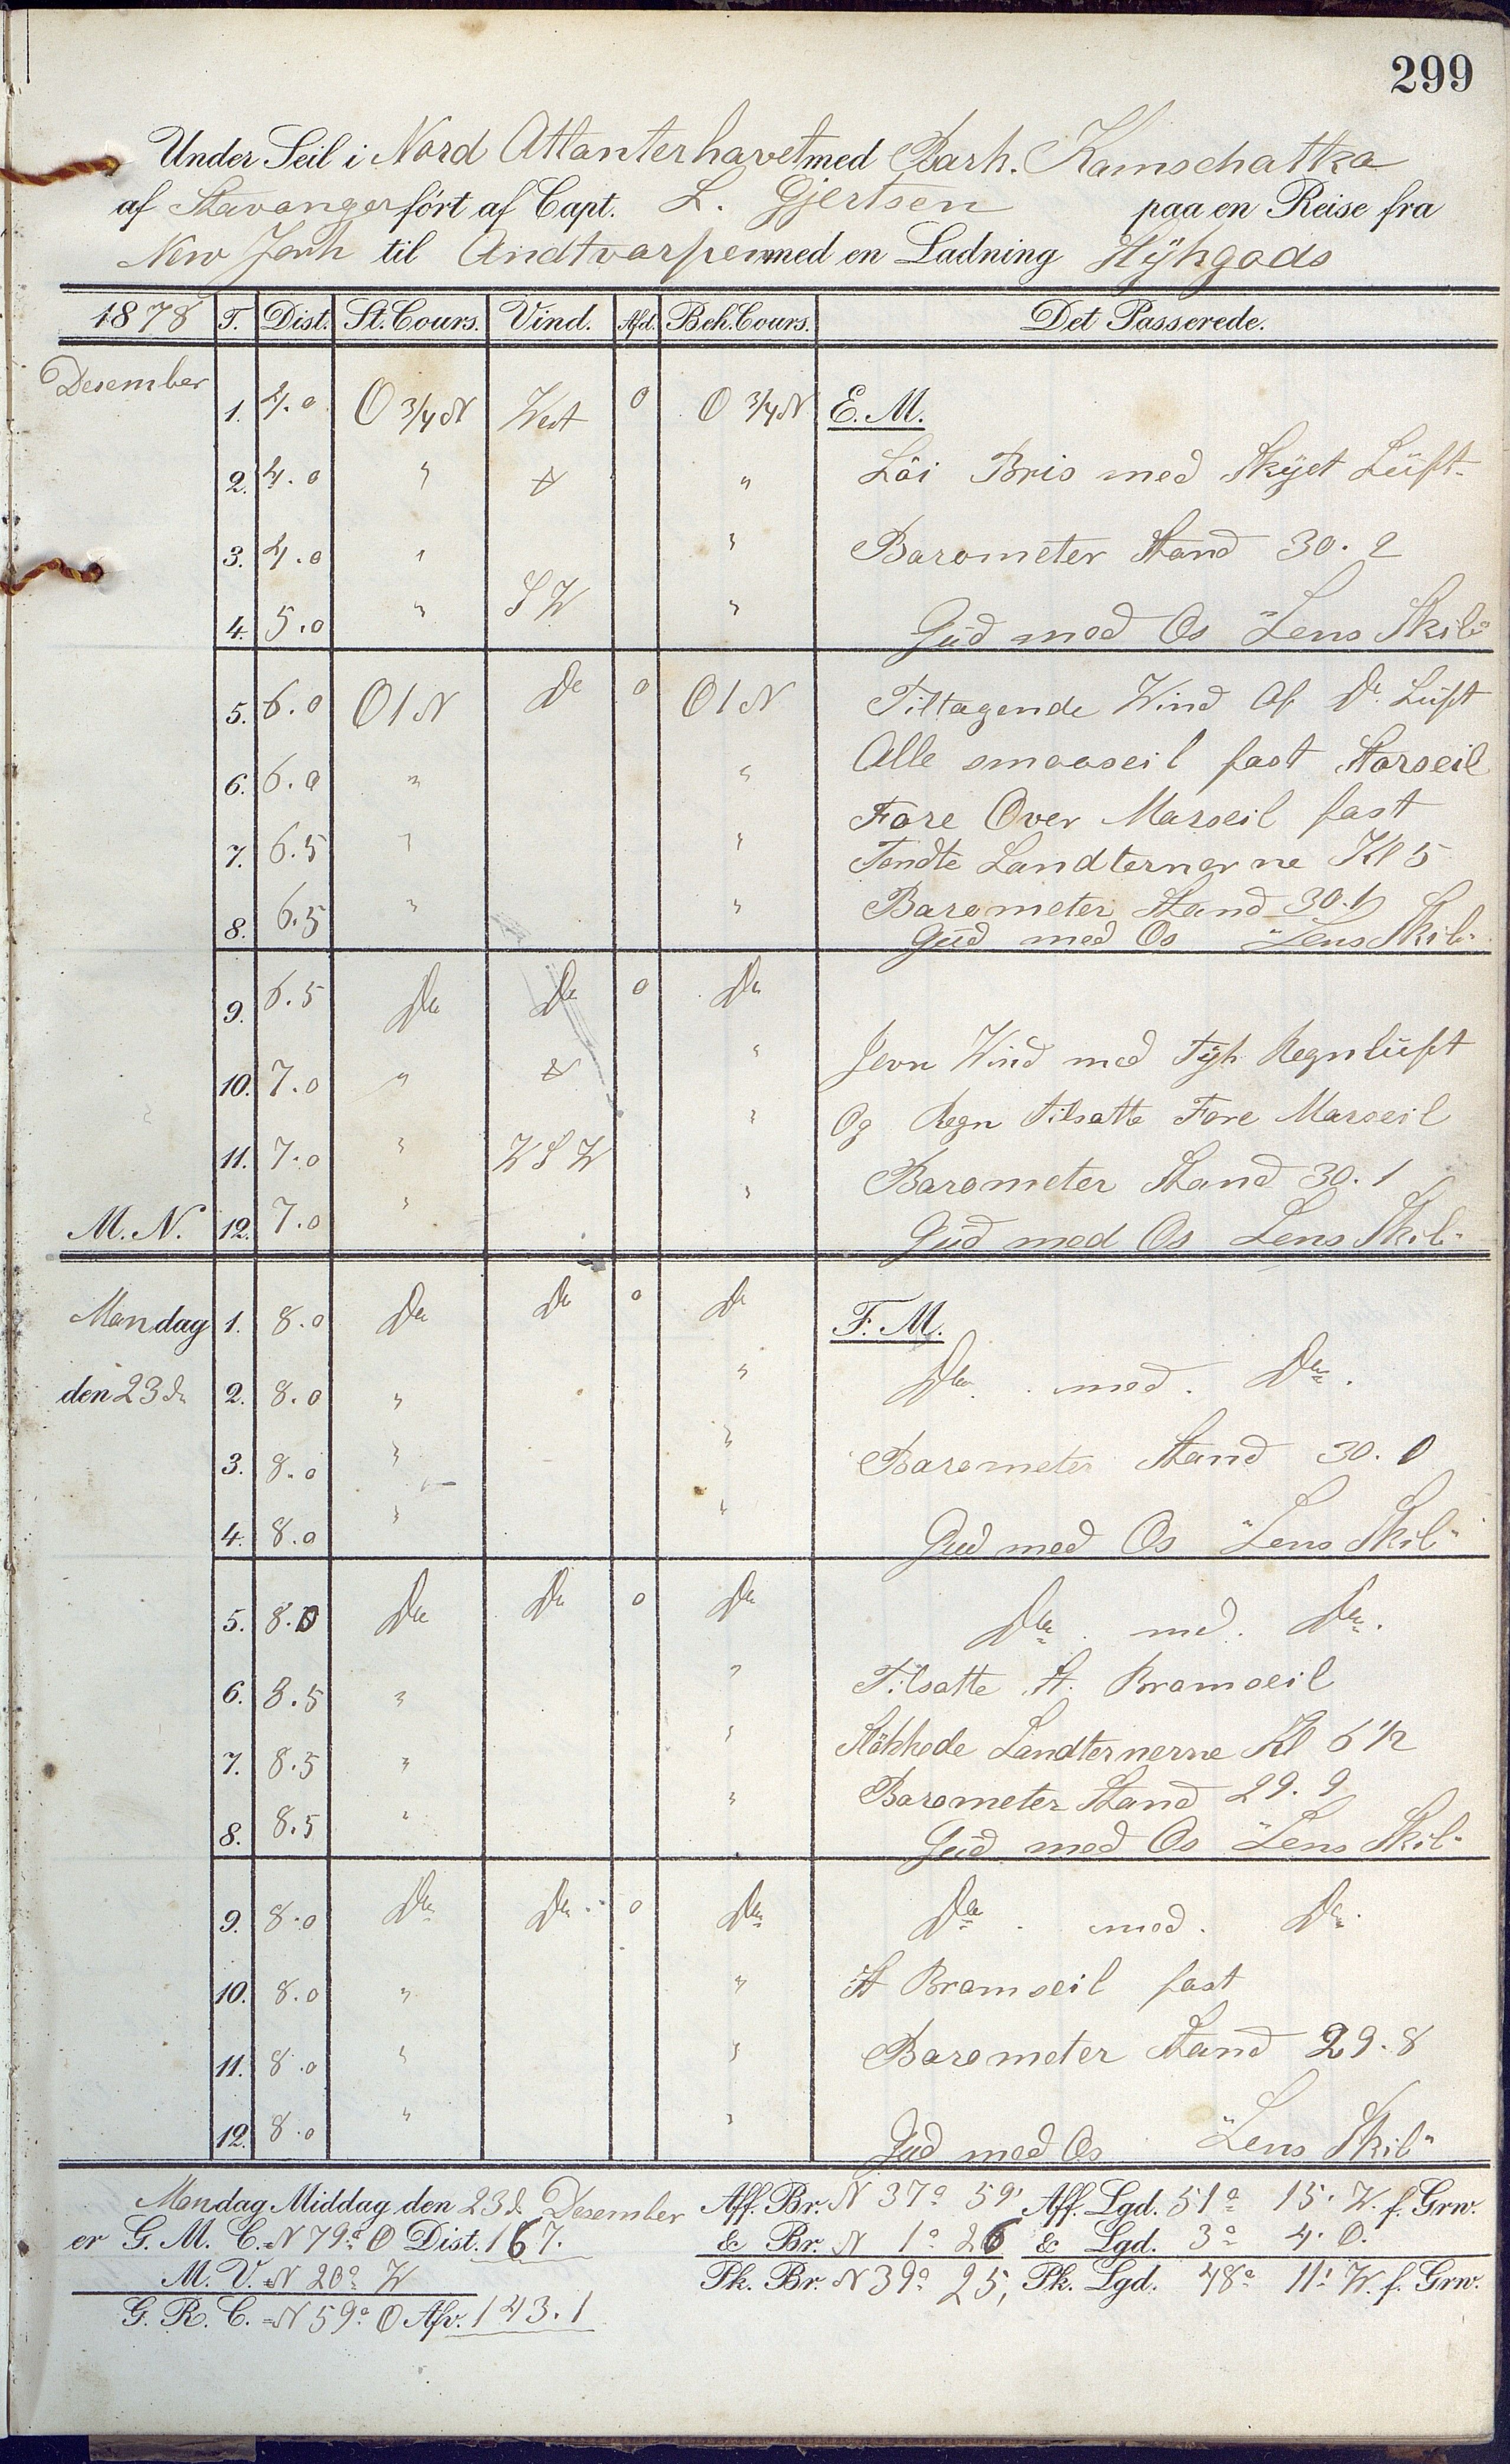 299
Under Seil i Nord Atlanterhavet med Bark. Kamschatka
af Stavanger fört af Capt. L. Gjertsen paa en Reise fra
New York til Andtvarpen med en Ladning Stÿkgods
1878 T. Dist. St. Cours. Vind. Afd. Beh. Cours. Det Passerede.
Desember
1. 4.0 O 3/4 N West 0 O 3/4 N E. M.
2. 4.0 " " Löi Bris med Skÿet Lüft
3. 4.0 " " Barometer Stand 30.2
4. 5.0 " SW " Güd med Os "Lens Skib"
5. 6.0 O 1 N Do 0 O 1 N Tiltagende Wind af Do. Lüft
6. 6.0 " " Alle smaaseil fast Storseil
Fore Over Marseil fast
7. 6.5 " " Tendte Landternerne Kl 5
8. 6.5 " " Barometer Stand 30.1
Güd med Os "Lens Skib"
9. 6.5 Do Do 0 Do
10. 7.0 " " Jevn Wind med Tÿk Regnlüft
11. 7.0 " WSW " Og Regn tilsatte Fore Marseil
Barometer Stand 30.1
M. N. 12. 7.0 " " Güd med Os Lens Skib"
Mandag 1. 8.0 Do Do 0 Do F. M.
den 23 d. 2. 8.0 " " Do. med. Do.
3. 8.0 " " Barometer Stand 30.0
4. 8.0 " " Güd med Os "Lens Skib"
5. 8.0 Do Do 0 Do Do. med. Do.
6. 8.5 " " Tilsatte St. Bramseil
7. 8.5 " " Slökkede Landternerne Kl 6 1/2
8. 8.5 " " Barometer Stand 29.9
Güd med Os "Lens Skib"
9. 8.0 Do Do 0 Do Do. med. Do.
10. 8.0 " " St Bramseil fast
11. 8.0 " " Barometer Stand 29.8
12. 8.0 " " Gud med Os "Lens Skib"
Mandag Middag den 23 d. Desember Aff. Br. N 37° 59' Aff. Lgd. 51° 15' W. f. Grw.
er G. M. C. N 79° O Dist. 167. & Br. N 1° 26 & Lgd. 3° 4' O.
M. V. N 20° W Pk. Br. N 39° 25, Pk. Lgd. 48° 11' W. f. Grw.
G. R. C. N 59° O Afv. 143.1